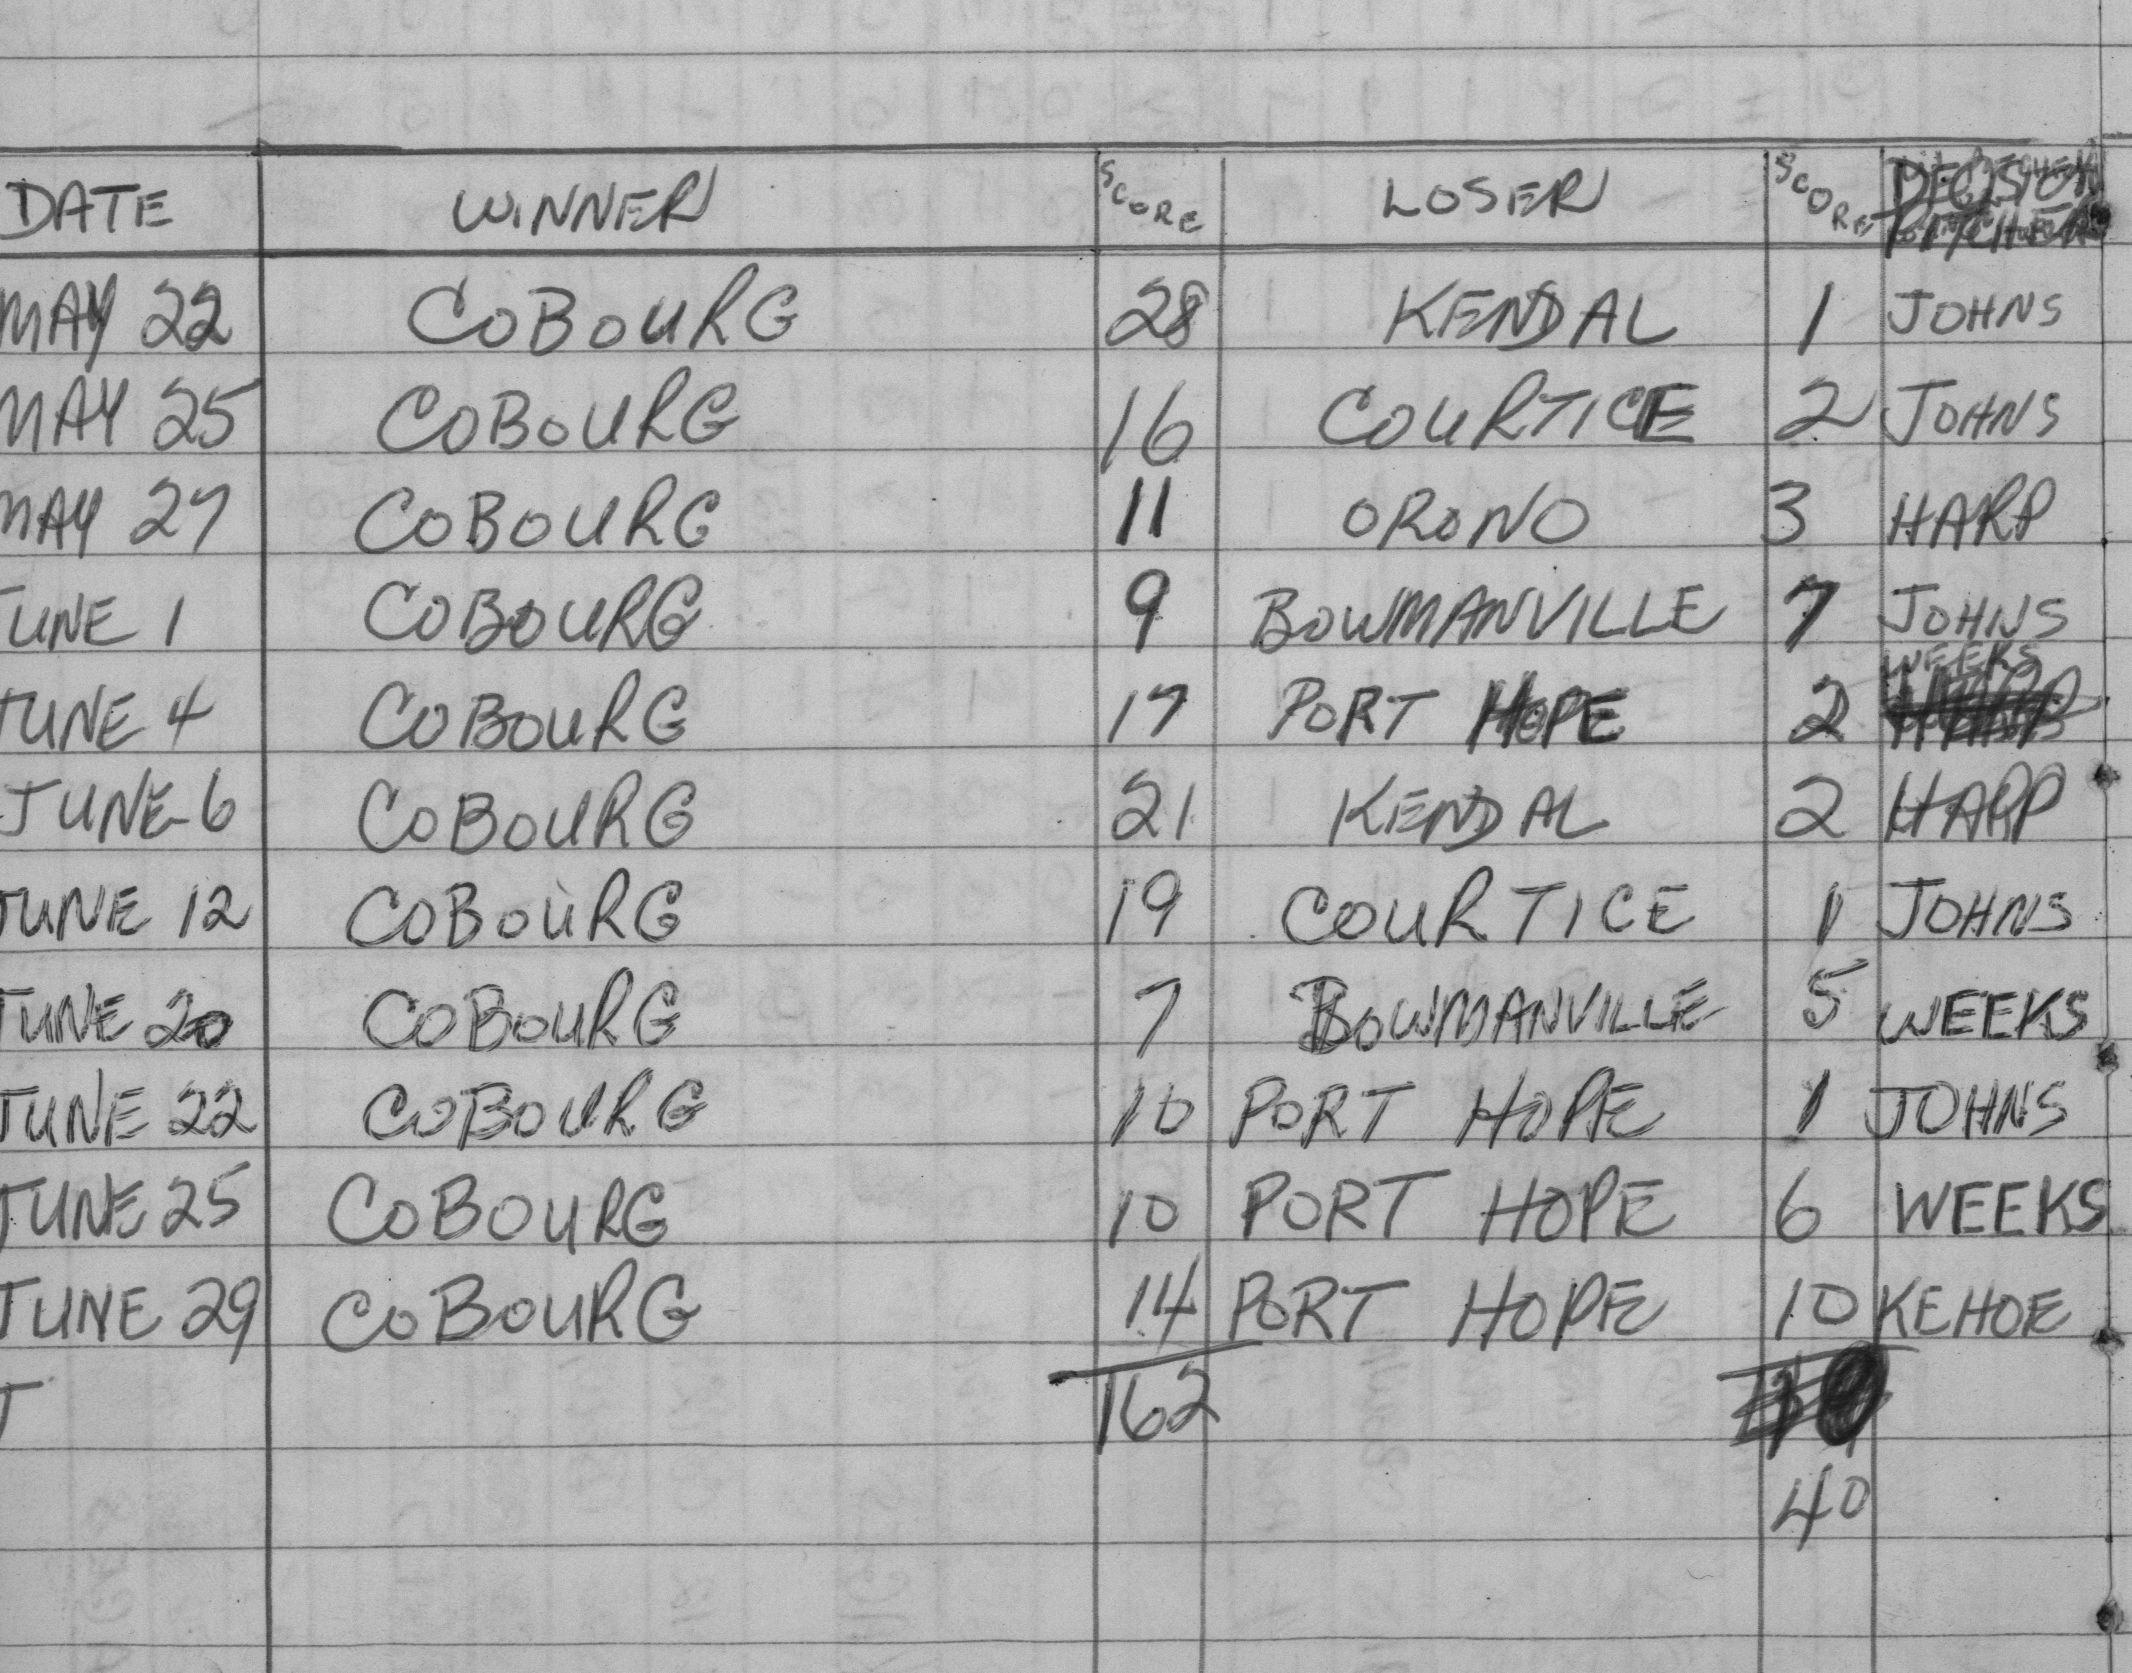 DATE WINNER SCORE LOSER SCORE DECISION PITCHER
MAY 22 COBOURG 28 KENDAL 1 JOHNS
MAY 25 COBOURG 16 COURTICE 2 JOHNS
MAY 27 COBOURG 11 ORONO 3 HARP
JUNE 1 COBOURG 9 BOWMANVILLE 7 JOHNS
JUNE 4 COBOURG 17 PORT HOPE 2 WEEKS
JUNE 6 COBOURG 21 KENDAL 2 HARP
JUNE 12 COBOURG 19 COURTICE 1 JOHNS
JUNE 20 COBOURG 7 BOWMANVILLE 5 WEEKS
JUNE 22 COBOURG 10 PORT HOPE 1 JOHNS
JUNE 25 COBOURG 10 PORT HOPE 6 WEEKS
JUNE 29 COBOURG 14 PORT HOPE 10 KEHOE
162
40